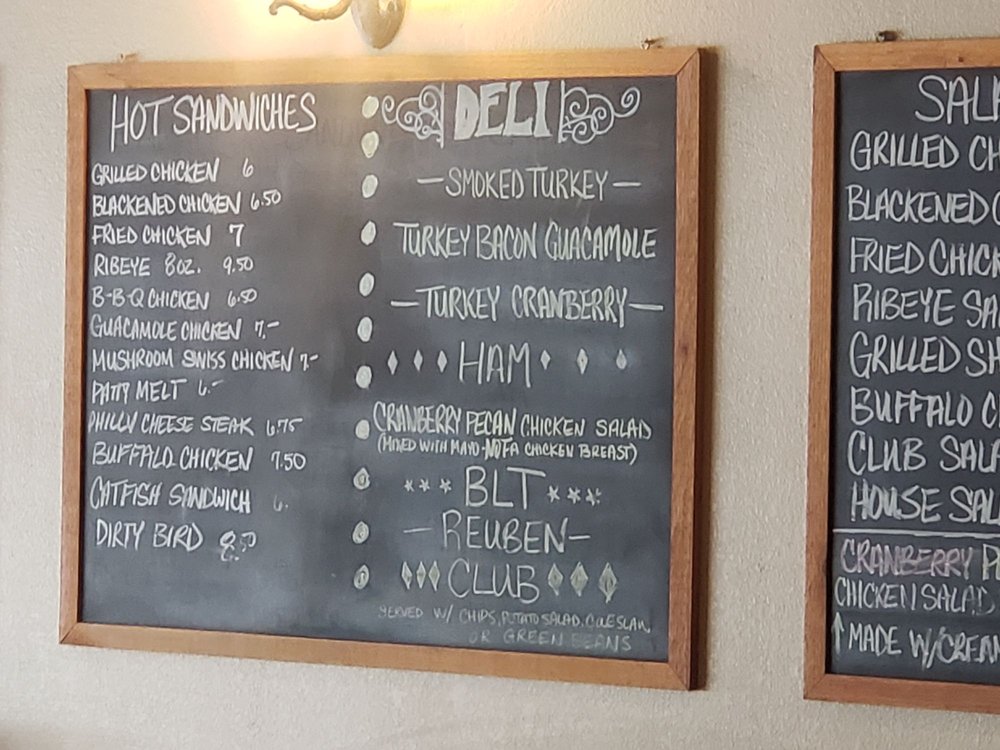 HOT SANDWICHES
GRILLED CHICKEN 6
BLACKENED CHICKEN 6.50
FRIED CHICKEN 7
RIBEYE 8OZ. 9.50
B-B-Q CHICKEN 6.50
GUACAMOLE CHICKEN 7.-
MUSHROOM SWISS CHICKEN 7-
PATTY MELT 6.-
PHILLY CHEESE STEAK 6.75
BUFFALO CHICKEN 7.50
CATFISH SANDWICH 6.
DIRTY BIRD 8.50
DELI
-SMOKED TURKEY-
TURKEY BACON GUACAMOLE
-TURKEY CRANBERRY-
HAM
CRANBERRY PECAN CHICKEN SALAD
(MIXED WITH MAYO-NOT A CHICKEN BREAST)
*** BLT ***
-REUBEN-
CLUB
SERVED W/ CHIPS, POTATO SALAD, COLESLAW
OR GREEN BEANS
SAL
GRILLED CH
BLACKENED
FRIED CHICK
RIBEYE SA
GRILLED SH
BUFFALO C
CLUB SALA
HOUSE SAL
CRANBERRY P
CHICKEN SALAD
↑MADE W/CREAM